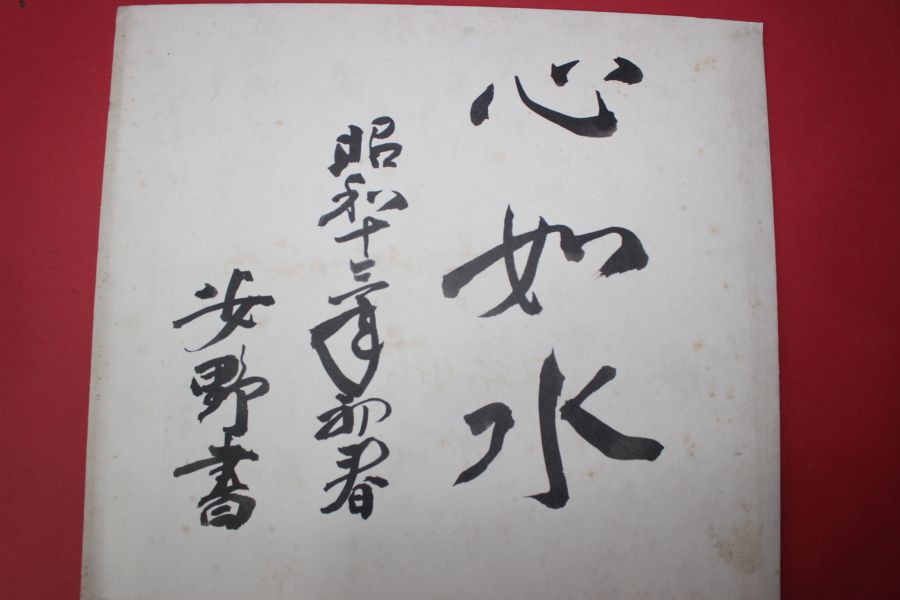 心如水
昭和十三年初春
安野書